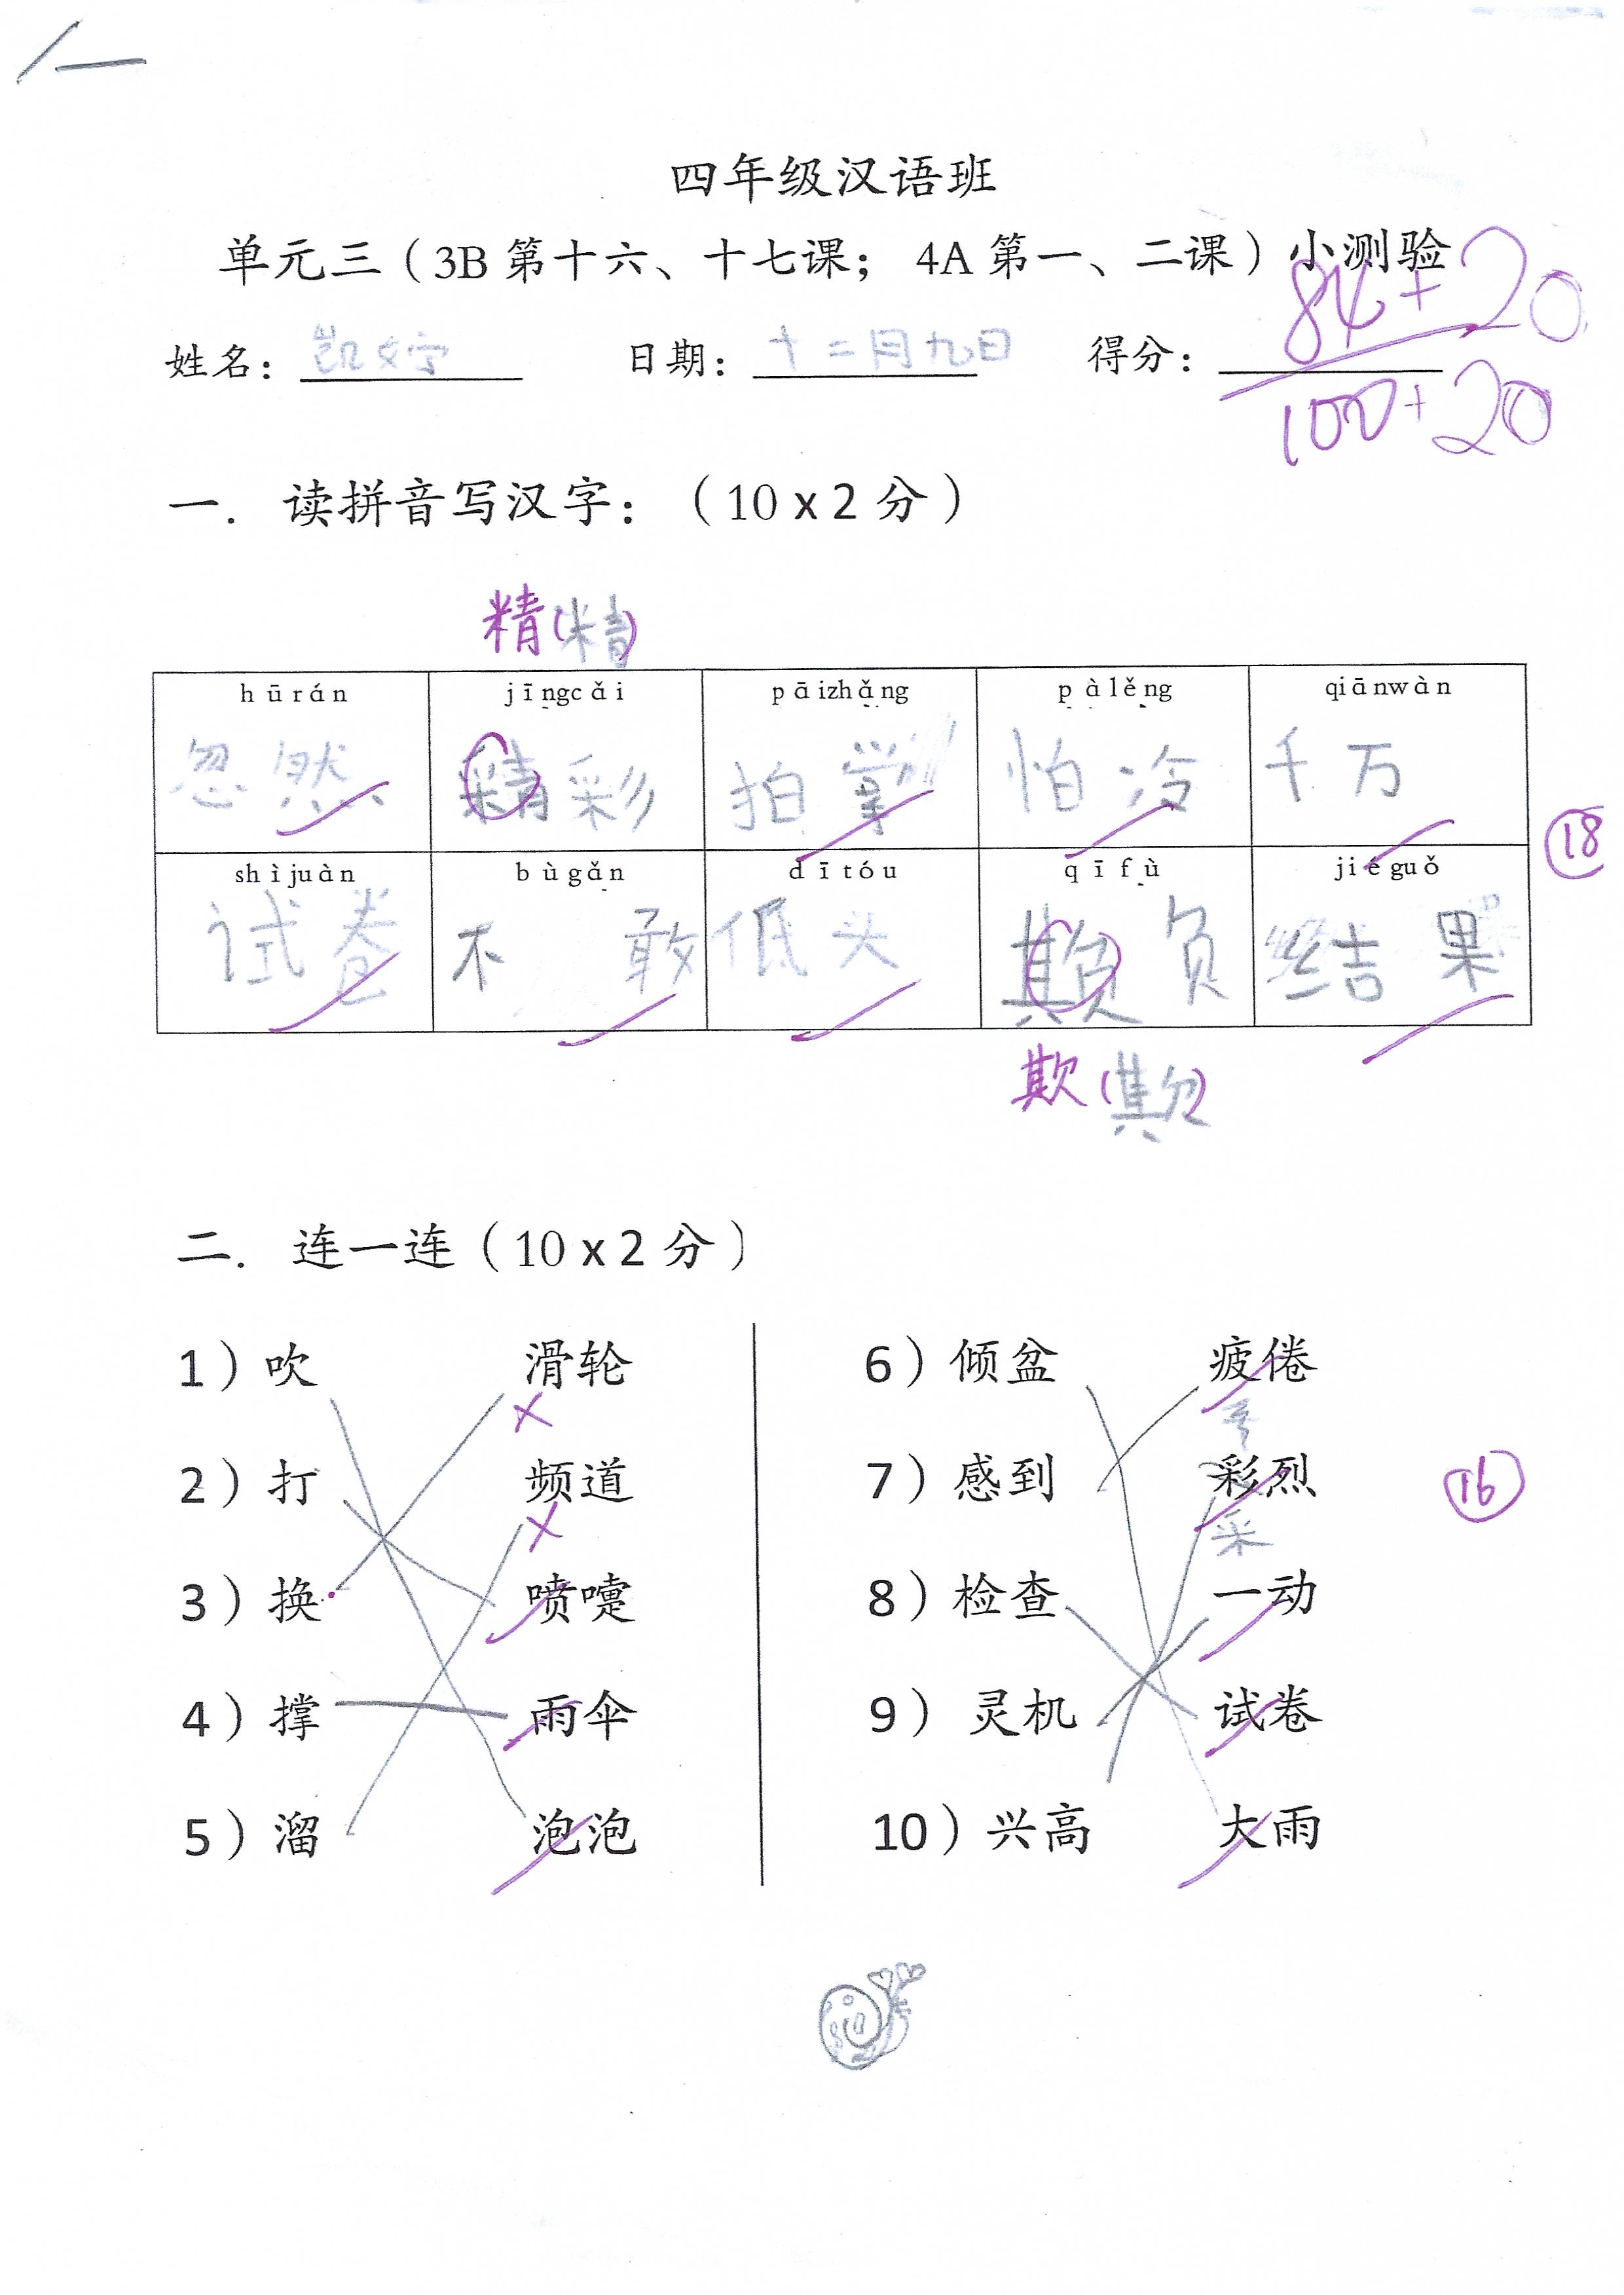 四年级汉语班
单元三（3B 第十六、十七课； 4A 第一、二课）小测验
84+20
姓名： 凯文宁 日期： 十二月九日 得分：
100+20
一． 读拼音写汉字：（10 x 2 分）
精(精)
hūrán jīngcǎi pāizhǎng pàlěng qiānwàn
忽然 精彩 拍掌 怕冷 千万
18
shìjuàn bùgǎn dītóu qīfù jiéguǒ
试卷 不敢 低头 欺负 结果
欺(欺)
二． 连一连（10 x 2 分）
1）吹 滑轮 6）倾盆 疲倦
2）打 频道 7）感到 彩烈
16
采
3）换 喷嚏 8）检查 一动
4）撑 雨伞 9） 灵机 试卷
5）溜 泡泡 10）兴高 大雨